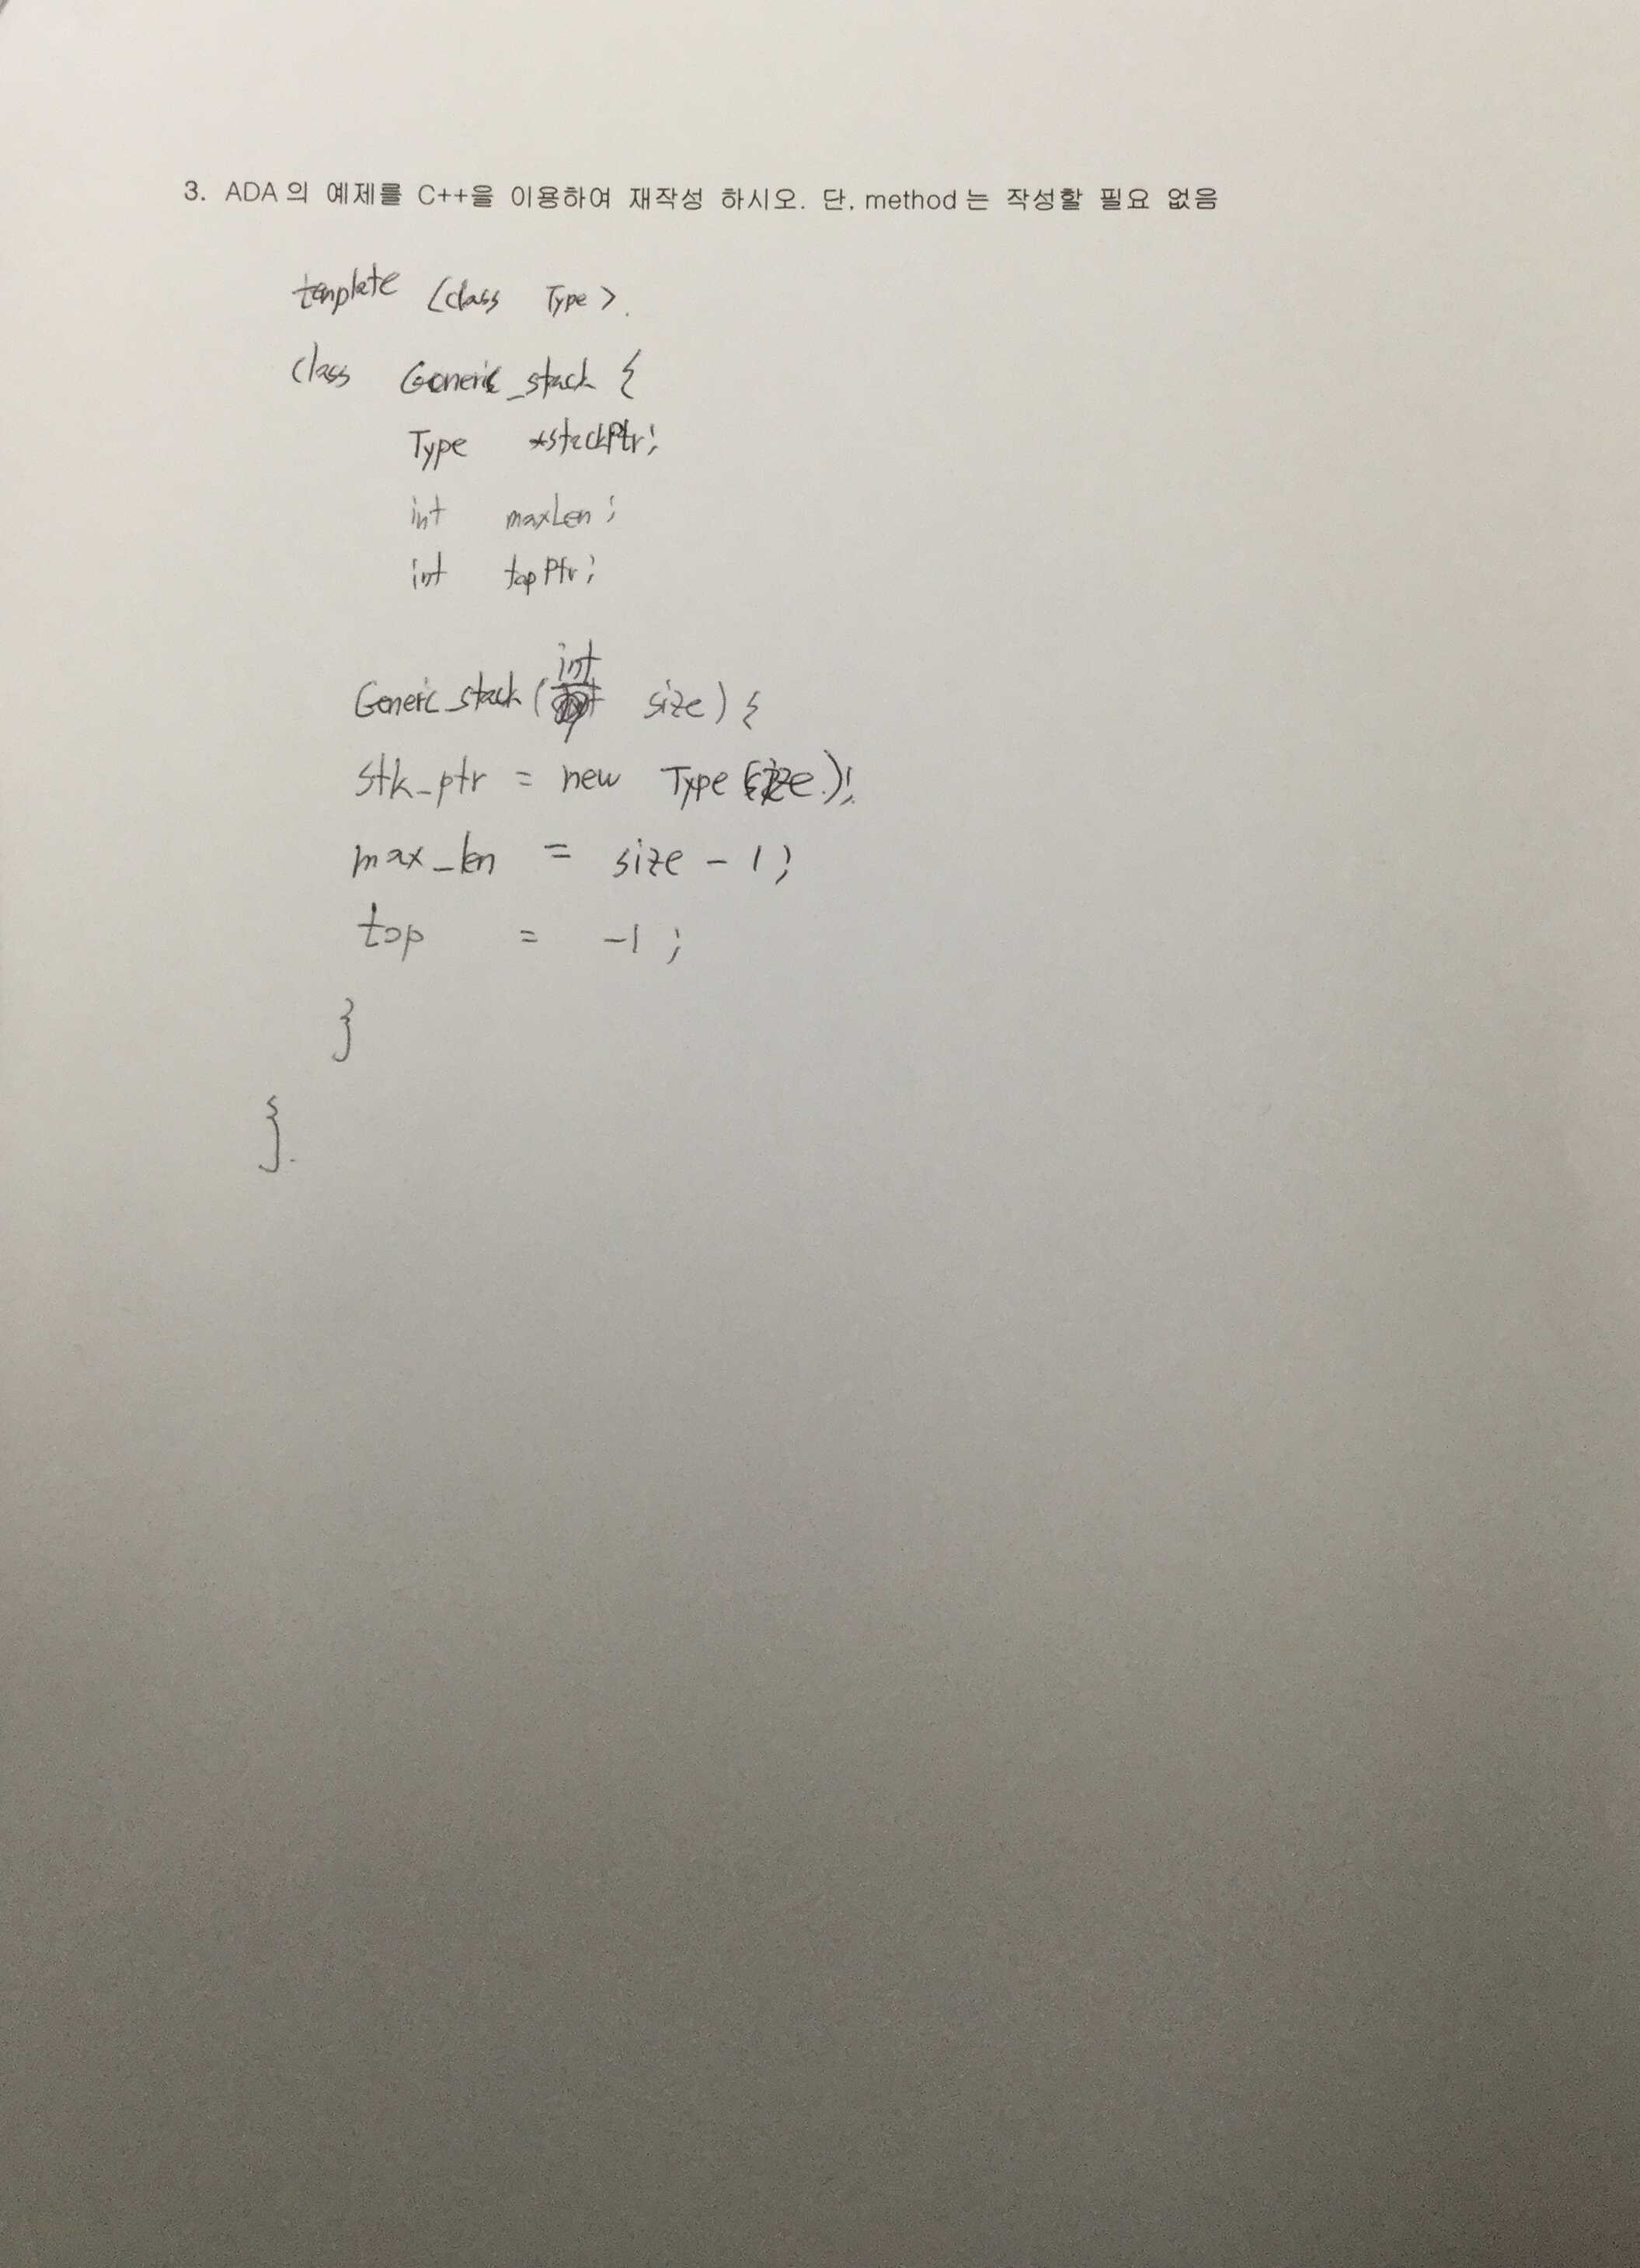 3. ADA의 예제를 C++을 이용하여 재작성 하시오. 단, method는 작성할 필요 없음
template <class Type>
class Generic_stack {
Type *stackPtr;
int maxLen;
int topPtr;
Generic_stack (int size) {
stk_ptr = new Type (size);
max_len = size - 1;
top = -1;
}
}.